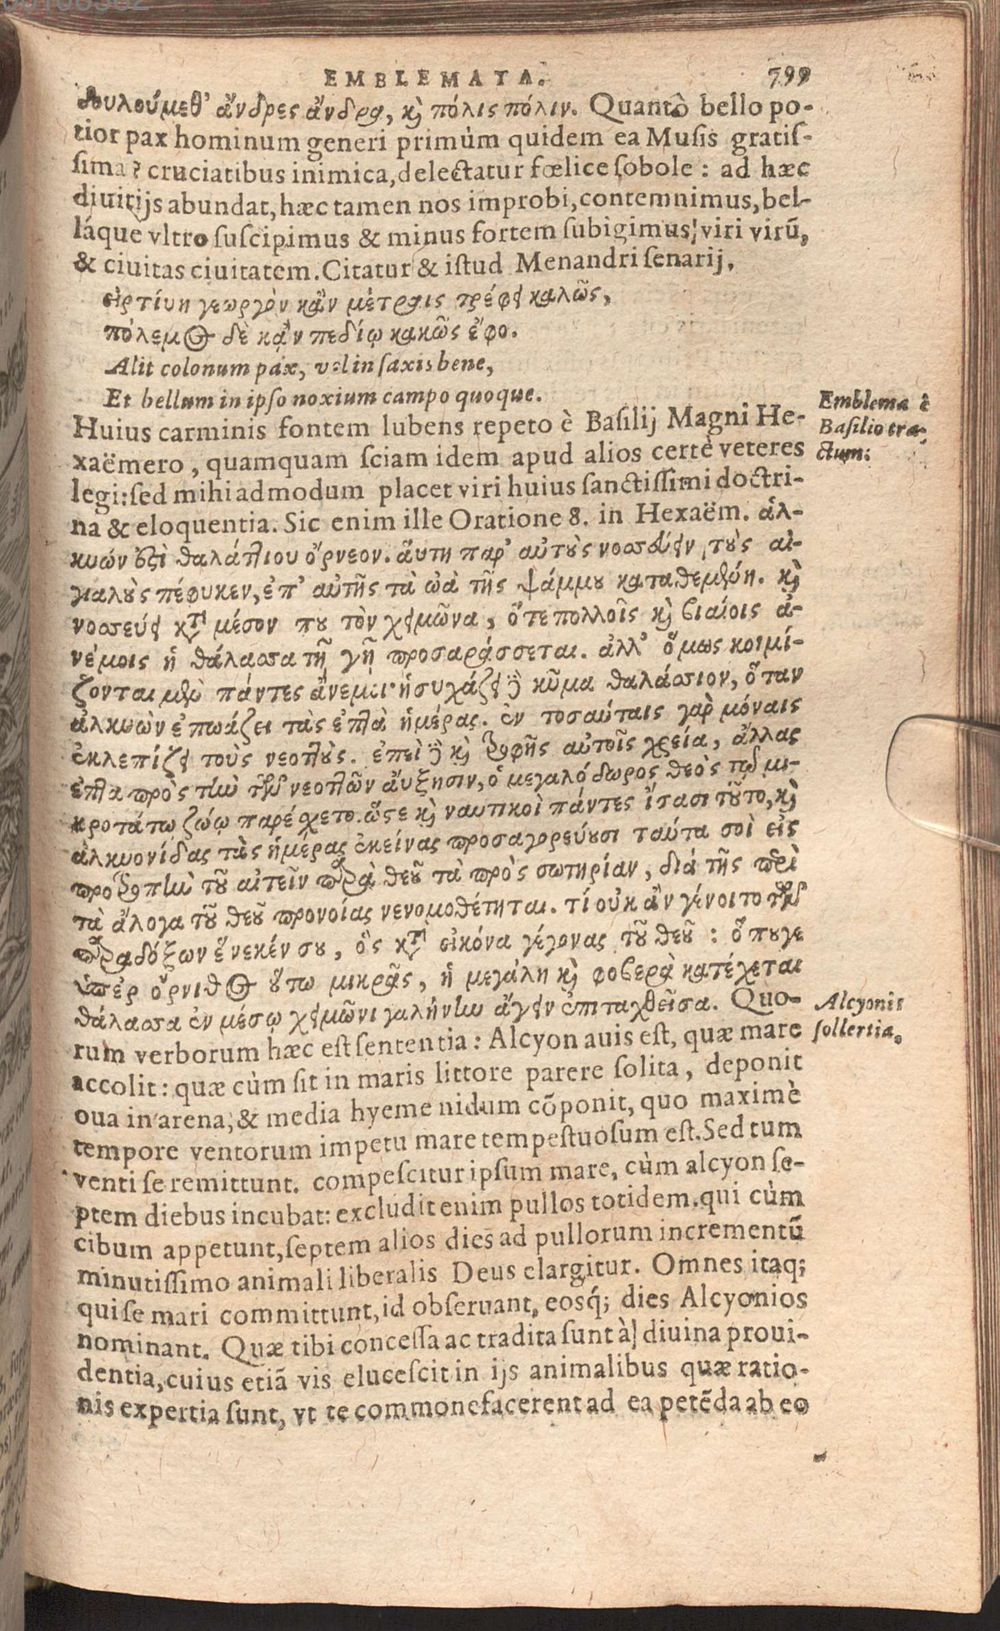 EMBLEMATA. 799
δουλούμεθ' ἄνδρες ἄνδρα, κỳ πόλις πόλιν. Quantò bello po-
tior pax hominum generi primùm quidem ea Musis gratiſ-
ſima? cruciatibus inimica, delectatur fœlice ſobole: ad hæc
diuitijs abundat, hæc tamen nos improbi, contemnimus, bel-
láque vltro ſuſcipimus & minus fortem ſubigimus, viri virũ,
& ciuitas ciuitatem. Citatur & iſtud Menandri ſenarij,
εἰρτίυη γεωργὸν κἂν μέτραις τρέφει καλῶς,
πόλεμος δὲ κἂν πεδίῳ κακῶς ἔφο.
Alit colonum pax, vel in ſaxis bene,
Et bellum in ipſo noxium campo quoque.
Emblema è
Baſilio tra-
ctum:
Huius carminis fontem lubens repeto è Baſilij Magni He-
xaëmero, quamquam ſciam idem apud alios certè veteres
legi: ſed mihi admodum placet viri huius ſanctiſſimi doctri-
na & eloquentia. Sic enim ille Oratione 8. in Hexaëm. ἁλ-
κυών ἐστὶ θαλάττιου ὄρνεον. ἅυτη παρ' αὐτοὺς νοσσεύειν τοὺς αἰ-
γιαλοὺς πέφυκεν, ἐπ' αὐτῆς τὰ ὠὰ τῆς ψάμμου καταθεμένη. καὶ
νοσσεύει κατὰ μέσον που τὸν χειμῶνα, ὅτε πολλοῖς καὶ βιαίοις ἀ-
νέμοις ἡ θάλασσα τῇ γῇ προσαράσσεται. ἀλλ' ὅμως κοιμί-
ζονται μὲν πάντες ἄνεμοι· ἡσυχάζει δὲ κῦμα θαλάσσιον, ὅταν
ἀλκυὼν ἐπωάζει τὰς ἑπτὰ ἡμέρας. ἐν τοσαύταις γὰρ μόναις
ἐκλεπίζει τοὺς νεοττούς. ἐπεὶ δὲ καὶ τροφῆς αὐτοῖς χρεία, ἄλλας
ἑπτα πρὸς τὴν τῶν νεοττῶν ἄυξησιν, ὁ μεγαλόδωρος θεὸς τῷ μι-
κροτάτῳ ζώῳ παρέχετο. ὥστε καὶ ναυτικοὶ πάντες ἴσασι τοῦτο, καὶ
ἀλκυονίδας τὰς ἡμέρας ἐκείνας προσαγορεύουσι ταύτα σοὶ εἰς
προτροπὴν τοῦ αἰτεῖν παρὰ θεοῦ τὰ πρὸς σωτηρίαν, διὰ τῆς περὶ
τὰ ἄλογα τοῦ θεοῦ προνοίας νενομοθέτηται. τί οὐκ ἂν γένοιτο τῶν
παραδόξων ἕνεκέν σου, ὃς κατ' εἰκόνα γέγονας τοῦ θεοῦ: ὅπουγε
ὑπὲρ ὄρνιθος οὕτω μικρᾶς, ἡ μεγάλη καὶ φοβερὰ κατέχεται
θάλασσα ἐν μέσῳ χειμῶνι γαλήνην ἄγειν ἐπιταχθεῖσα. Quo-
Alcyonis
ſollertia.
rum verborum hæc eſt ſententia: Alcyon auis eſt, quæ mare
accolit: quæ cùm ſit in maris littore parere ſolita, deponit
oua in arena, & media hyeme nidum cõponit, quo maximè
tempore ventorum impetu mare tempeſtuoſum eſt. Sed tum
venti ſe remittunt. compeſcitur ipſum mare, cùm alcyon ſe-
ptem diebus incubat: excludit enim pullos totidem. qui cùm
cibum appetunt, ſeptem alios dies ad pullorum incrementũ
minutiſſimo animali liberalis Deus elargitur. Omnes itaq;
qui ſe mari committunt, id obſeruant, eosq́; dies Alcyonios
nominant. Quæ tibi conceſſa ac tradita ſunt à diuina proui-
dentia, cuius etiã vis eluceſcit in ijs animalibus quæ ratio-
nis expertia ſunt, vt te commonefacerent ad ea petẽda ab eo